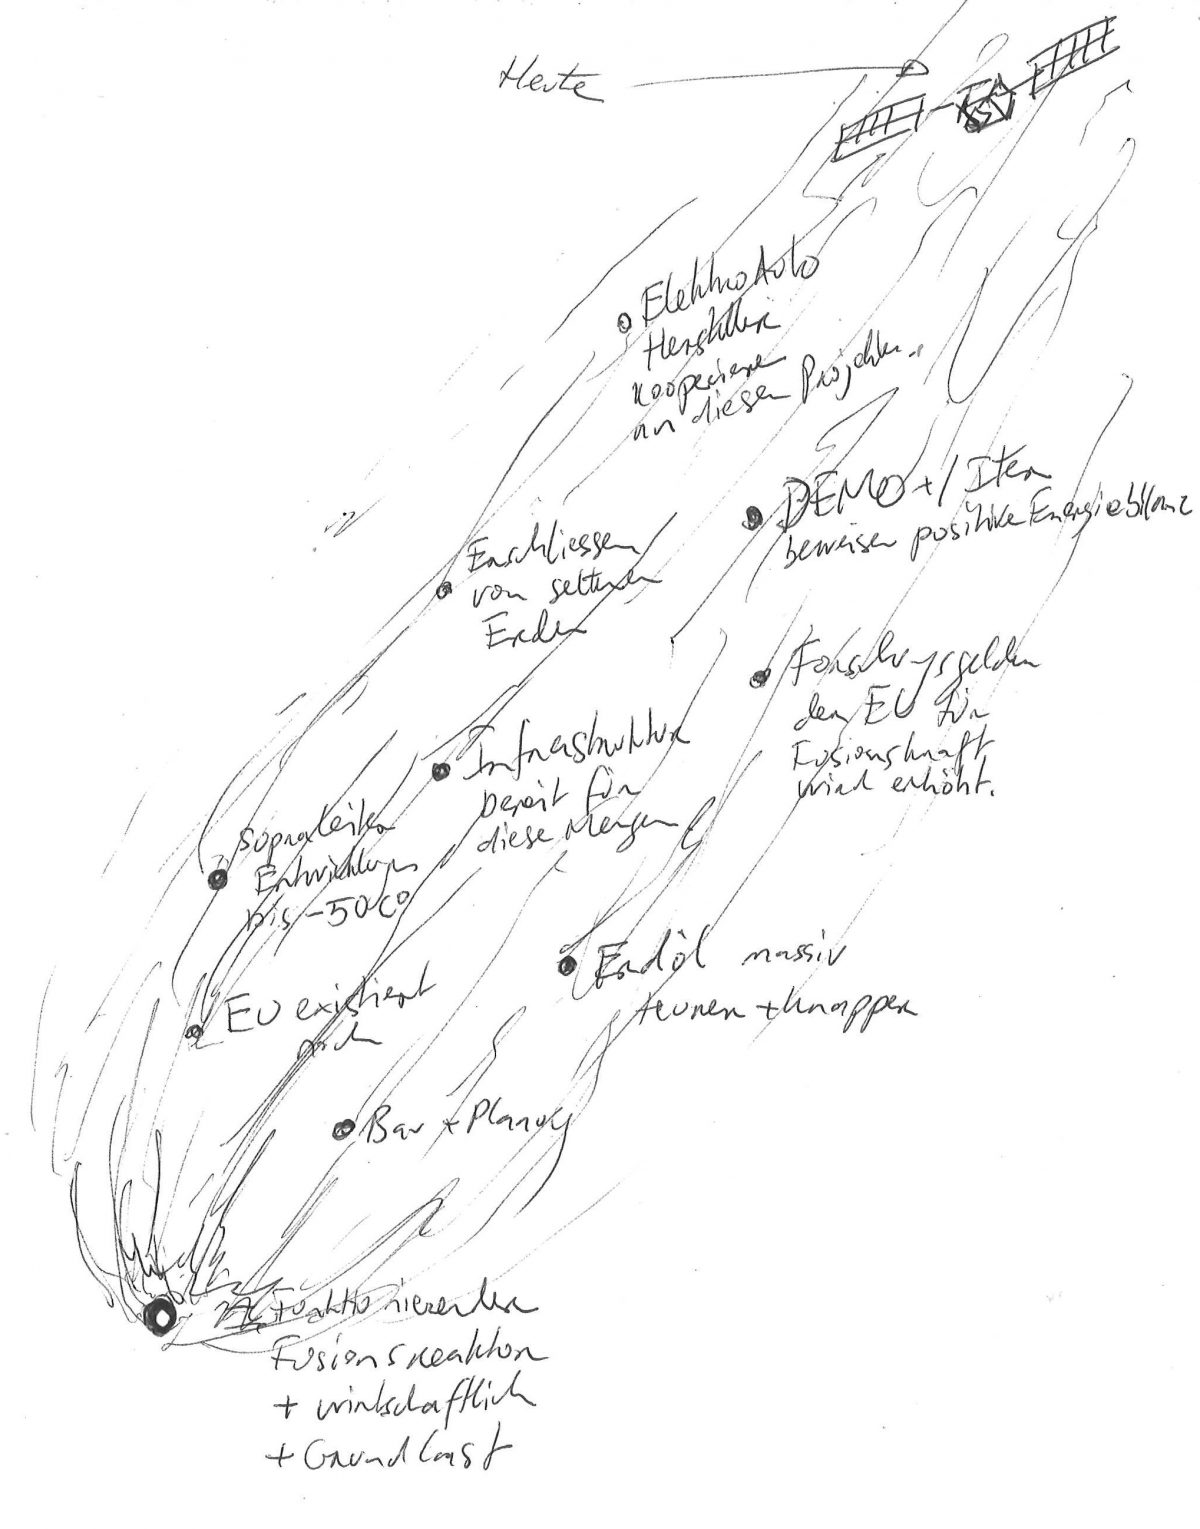 Heute
Elektro Auto
Hersteller
kooperieren
an diesen Projekten.
DEMO + / Iter
beweisen positive Energiebilanz
Erschliessen
von seltenen
Erden
Forschungsgelder
der EU für
Fusionskraft
wird erhöht.
Infrastruktur
bereit für
diese Mengen
Supraleiter
Entwicklung
bis -50 C°
Erdöl massiv
teurer + knapper
EU existiert
noch
Bau + Planung
Funktionierender
Fusionsreaktor
+ wirtschaftlich
+ Grundlast